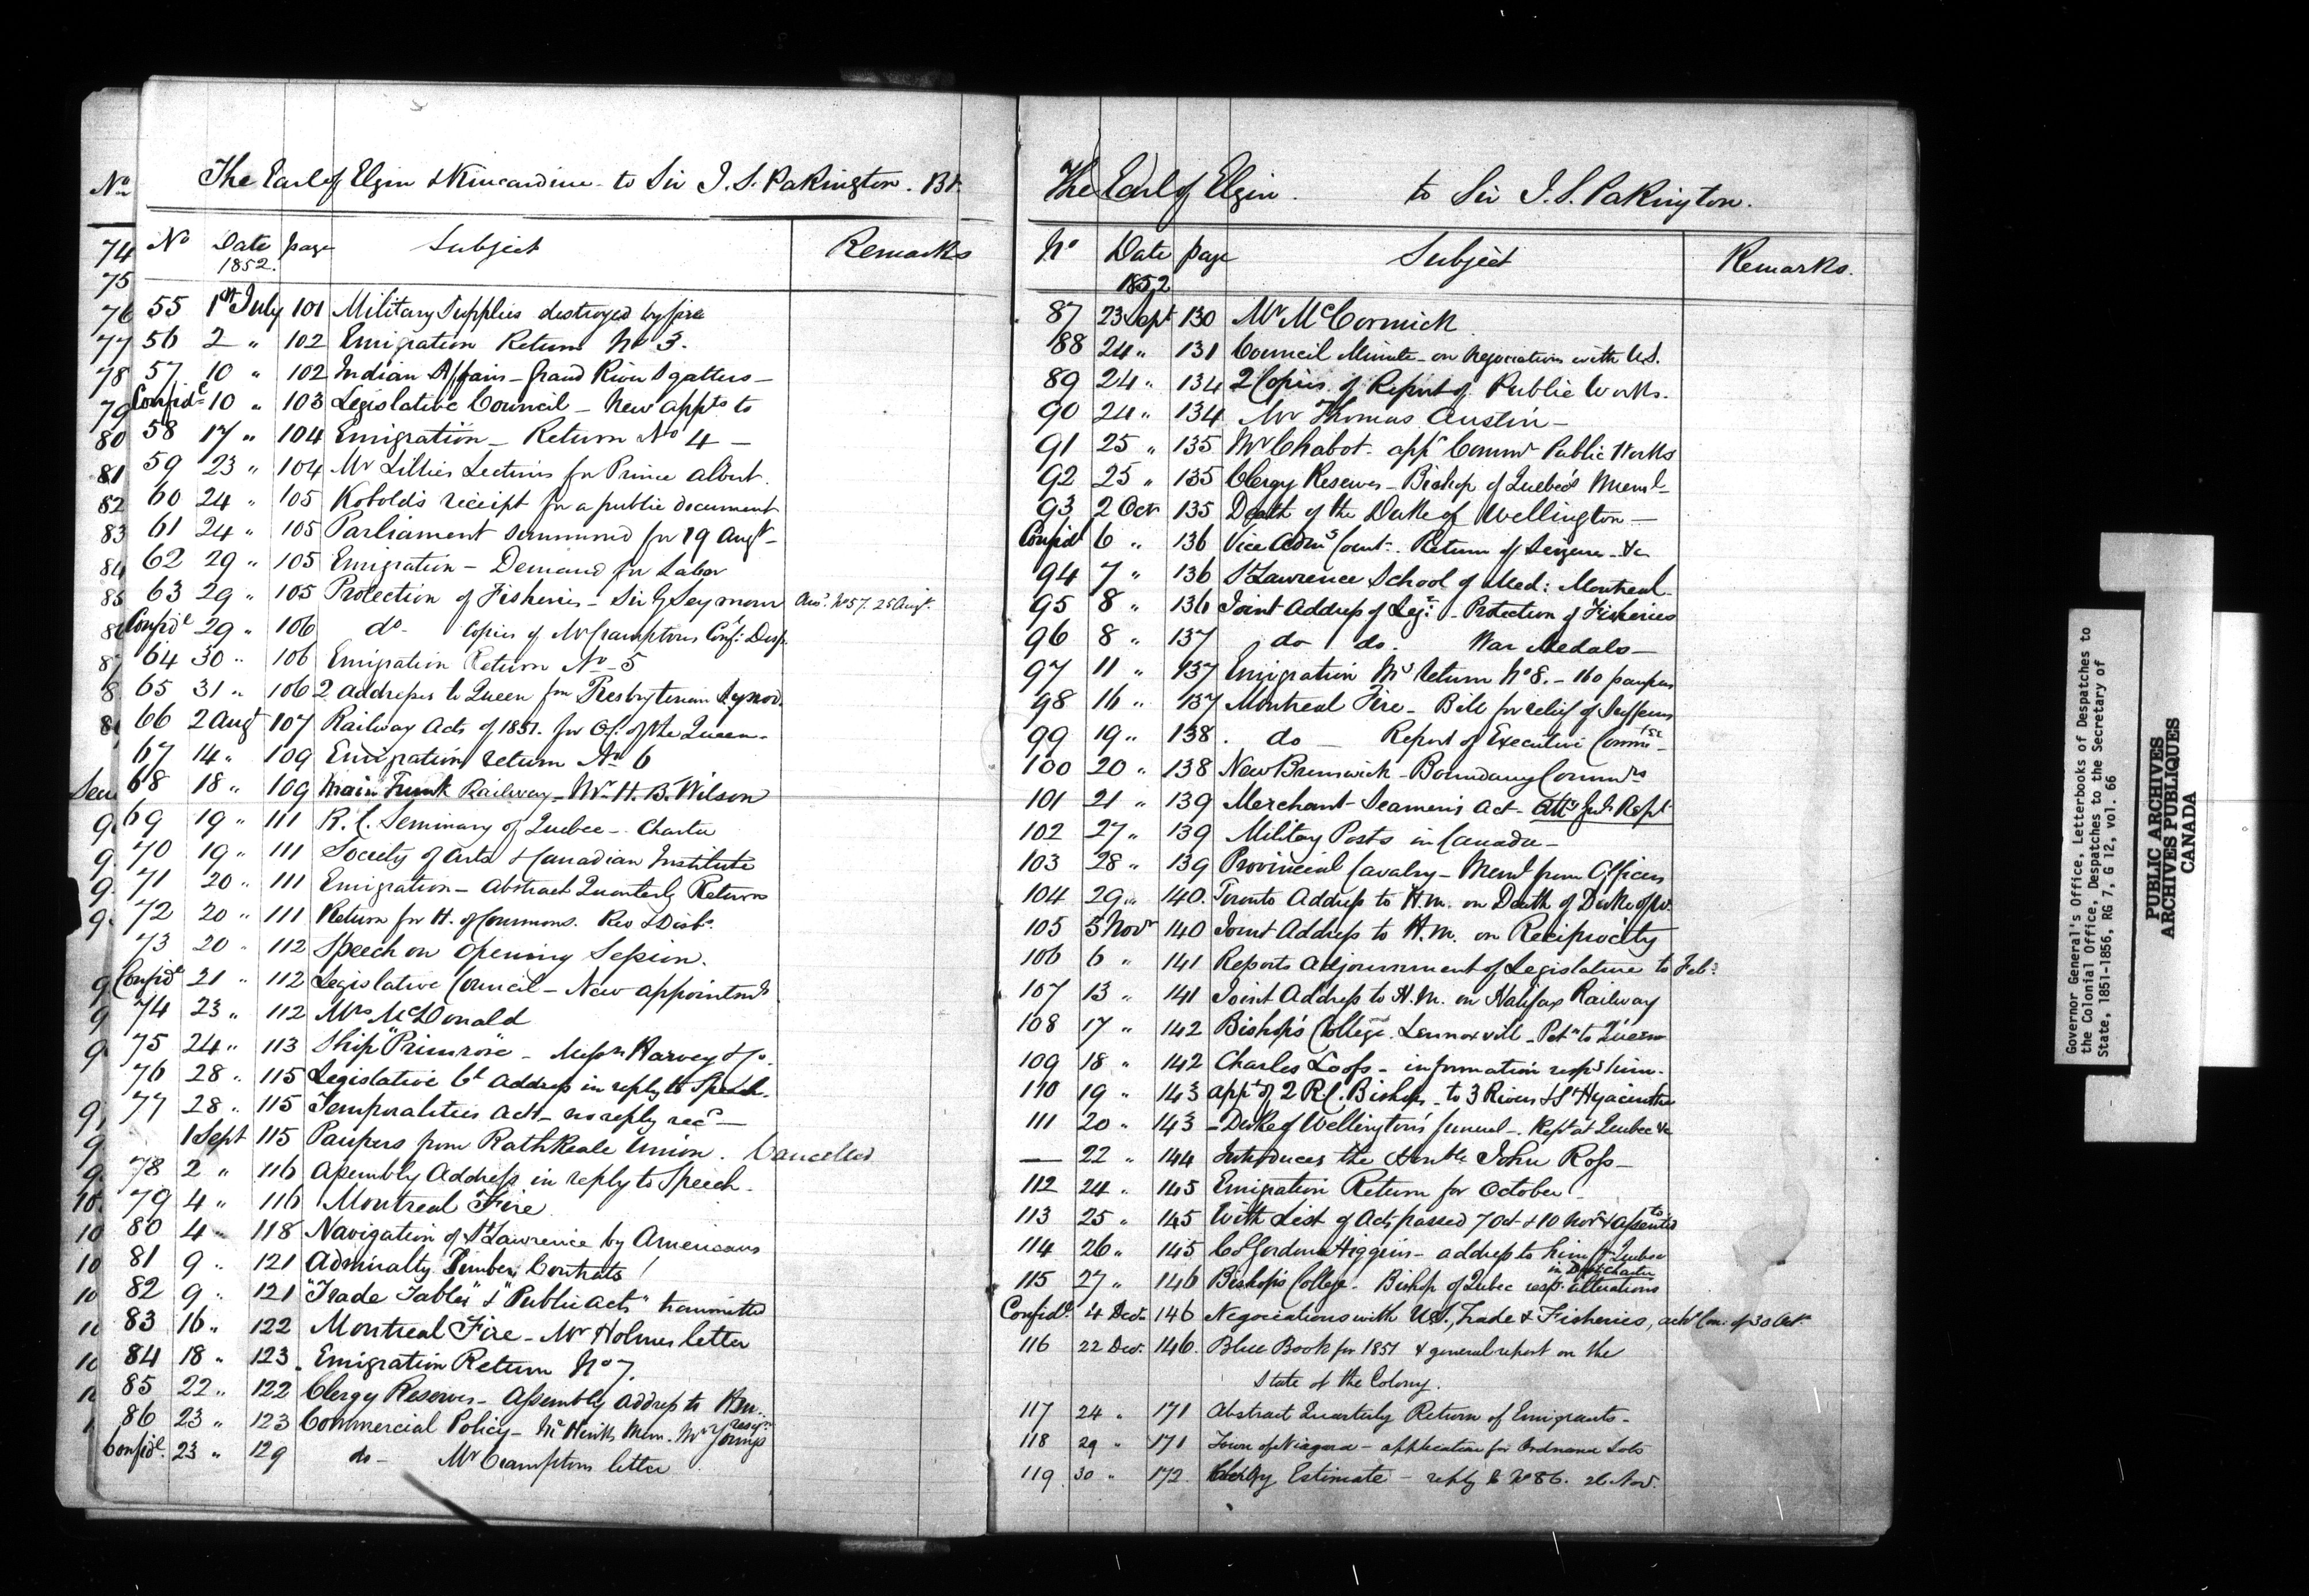 The Earl of Elgin & Kincardine to Sir J. S. Pakington. Bt.
No Date page Subject Remarks
1852.
55 1st July 101 Military Supplies destroyed by fire
56 2 " 102 Emigration Return No 3.
57 10 " 102 Indian Affairs - Grand River
Confidl 10 " 103 Legislative Council - New appts to
58 17 " 104 Emigration - Return No 4 -
59 23 " 104 Mr Lillies Lectures for Prince Albert.
60 24 " 105 Kobold's receipt for a public document
61 24 " 105 Parliament summoned for 19 Augt -
62 29 " 105 Emigration - Demand for Labor
63 29 " 105 Protection of Fisheries - Sir G Seymour Ansd. No 57. 25 Augt.
Confidl 29 " 106 do - Copies of Mr Cramptons Conf: Desp.
64 30 " 106 Emigration Return No 5
65 31 " 106 2 addresses to Queen from Presbyterian Synod.
66 2 Augt 107 Railway Acts of 1851. for of the Queen -
67 14 " 109 Emigration return No 6
68 18 " 109 Main Trunk Railway - Mr H. B. Wilson
69 19 " 111 R. C. Seminary of Quebec - Charter
70 19 " 111 Society of Arts & Canadian Institute
71 20 " 111 Emigration - Abstract Quarterly Return
72 20 " 111 Return for H. of Commons. Rev & Disbt.
73 20 " 112 Speech on opening Session.
Confidl 21 " 112 Legislative Council - New appointmts
74 23 " 112 Mrs McDonald
75 24 " 113 Ship "Primrose" - Messrs Harvey & Co.
76 28 " 115 Legislative Cl Address in reply to Speech.
77 28 " 115 Temporalities Act - no reply recd -
1 Sept 115 Paupers from Rathkeale Union. Cancelled
78 2 " 116 Assembly Address in reply to Speech.
79 4 " 116 Montreal Fire
80 4 " 118 Navigation of St Lawrence by Americans
81 9 " 121 Admiralty Timber Contracts
82 9 " 121 "Trade Tables" & "Public Acts" transmitted
83 16 " 122 Montreal Fire - Mr Holmes letter
84 18 " 123 Emigration Return No 7.
85 22 " 122 Clergy Reserves - Assembly Address to H.M.
86 23 " 123 Commercial Policy - Mr Hincks Mem. Mr Youngs resign
Confidl. 23 " 129 do - Mr Cramptons letter
No
74
75
76
77
78
79
80
81
82
83
84
85
The Earl of Elgin. to Sir J. S. Pakington.
No Date page Subject Remarks.
1852
87 23 Sept 130 Mr McCormick
88 24 " 131 Council Minute - on Negociations with U.S.
89 24 " 134 2 Copies of Report of Public Works.
90 24 " 134 Mr Thomas Austin -
91 25 " 135 Mr Chabot - appd Commr Public Works
92 25 " 135 Clergy Reserves - Bishop of Quebec's Meml -
93 2 Oct 135 Death of the Duke of Wellington -
Confidl 6 " 136 Vice Admy Court - Return of Seizures &c
94 7 " 136 St Lawrence School of Med: Montreal -
95 8 " 136 Joint Address of Leg: - Protection of Fisheries
96 8 " 137 do do. War Medals -
97 11 " 137 Emigration Return No 8. - 160 paupers
98 16 " 137 Montreal Fire - Bill for relief of Sufferers
99 19 " 138 do - Report of Executive Commtee
100 20 " 138 New Brunswick - Boundary Commrs
101 21 " 139 Merchant Seamen's Act - Atty Genl Rept
102 27 " 139 Military Posts in Canada -
103 28 " 139 Provincial Cavalry - Meml from Officers
104 29 " 140. Toronto Address to H.M. on Death of Duke of W.
105 5 Novr 140 Joint Address to H.M. on Reciprocity
106 6 " 141 Reports Adjournment of Legislature to Feb:
107 13 " 141 Joint Address to H.M. on Halifax Railway
108 17 " 142 Bishop's College. Lennoxvill - Petn to Queen
109 18 " 142 Charles Loofs - information respg him.
110 19 " 143 appt of 2 R.C. Bishops - to 3 Rivers & St Hyacinthe
111 20 " 143 - Duke of Wellington's funeral - Rept at Quebec &c
— 22 " 144 Introduces the Honble John Ross -
112 24 " 145 Emigration Return for October -
113 25 " 145 With List of Acts passed 7 Oct & 10 Novr & assented to
114 26 " 145 Col Gordon Higgins - address to him fm Quebec
115 27 " 146 Bishop's College. Bishop of Quebec resp. alterations in Charter
Confidl. 4 Decr 146 Negociations with U.S., Trade & Fisheries, Con. of 30 Octr
116 22 Dec. 146. Blue Book for 1851 & general report on the
State of the Colony.
117 24 " 171 Abstract Quarterly Return of Emigrants -
118 29 " 171 Town of Niagara - application for Ordnance Lots
119 30 " 172. Clergy Estimate - reply to No 86. 26 Nov.
Governor General's Office, Letterbooks of Despatches to
the Colonial Office, Despatches to the Secretary of
State, 1851-1856, RG 7, G 12, vol. 66
PUBLIC ARCHIVES
ARCHIVES PUBLIQUES
CANADA